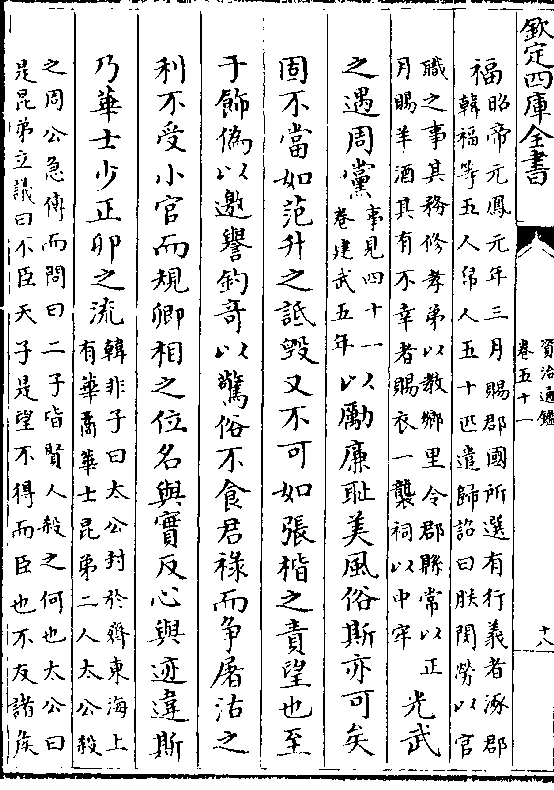 欽定四庫全書
資治通鑑
卷五十一
十八
福昭帝元鳳元年三月賜郡國所選有行義者涿郡
韓福等五人帛人五十匹遣歸詔曰朕閔勞以官
職之事其務修孝弟以教鄉里令郡縣常以正
月賜羊酒其有不幸者賜衣一襲祠以中牢
光武
之遇周黨事見四十一
卷建武五年以勵廉耻美風俗斯亦可矣
固不當如范升之詆毀又不可如張楷之責望也至
于飾偽以邀譽釣奇以驚俗不食君祿而争屠沽之
利不受小官而規卿相之位名與實反心與迹違斯
乃華士少正卯之流韓非子曰太公封於齊東海上
有華喬華士昆弟二人太公殺
之周公急傳而問曰二子皆賢人殺之何也太公曰
是昆弟立議曰不臣天子是望不得而臣也不友諸侯